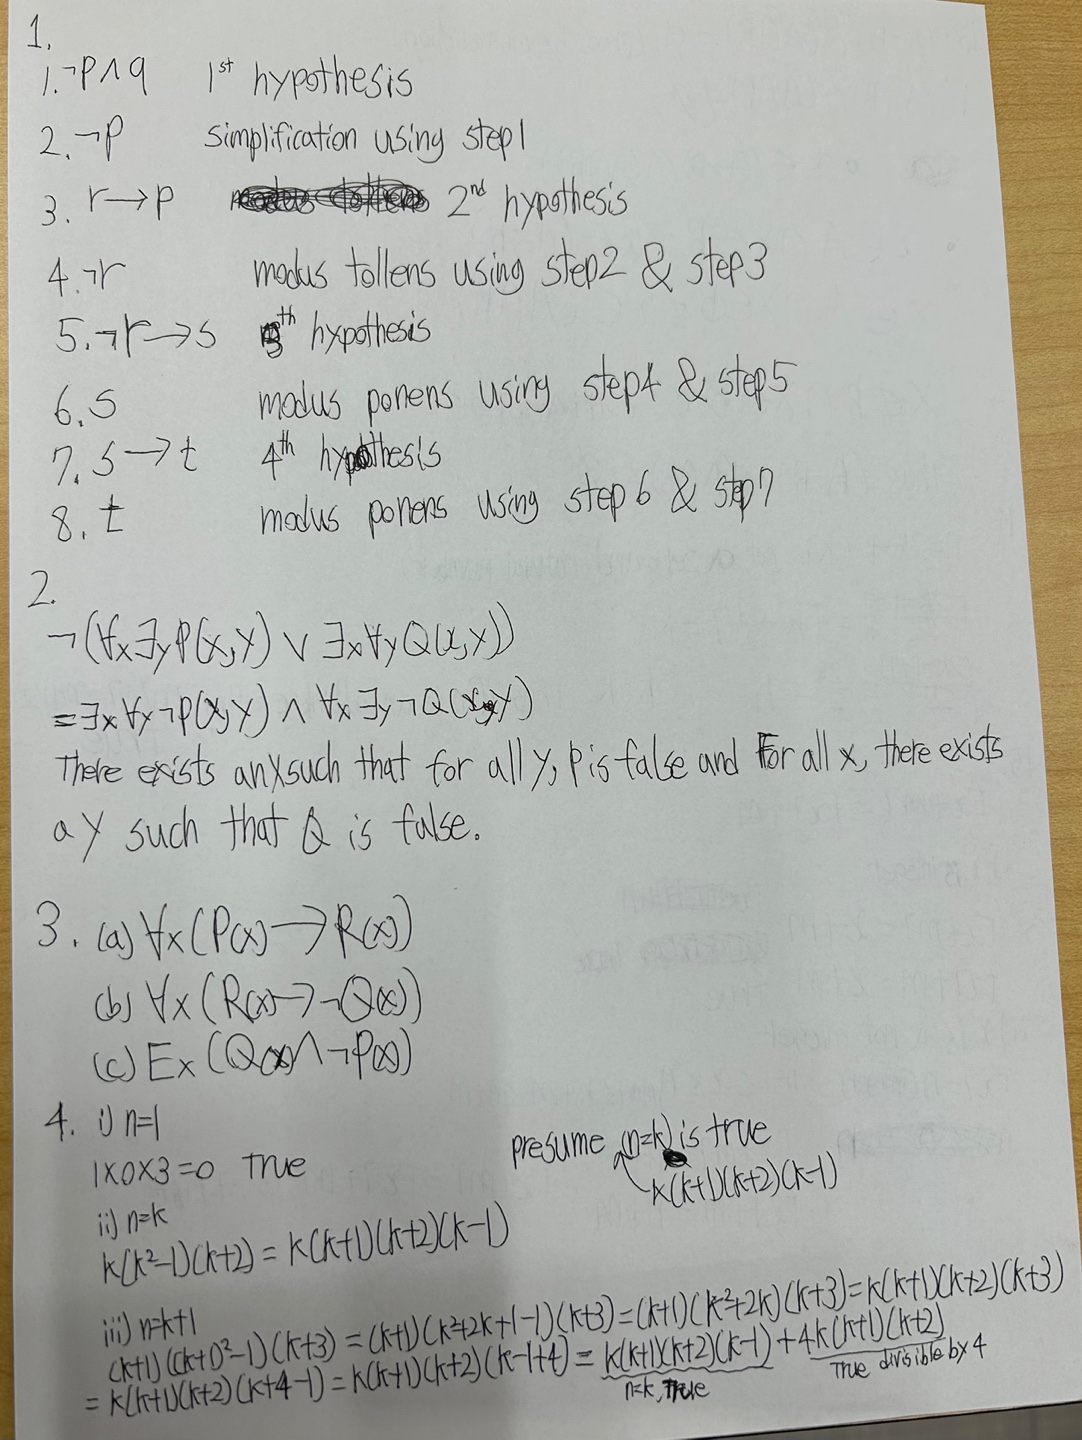 1.
1. ¬p∧q 1st hypothesis
2. ¬p simplification using step1
3. r→p 2nd hypothesis
4. ¬r modus tollens using step2 & step3
5. ¬r→s 3th hypothesis
6. s modus ponens using step4 & step5
7. s→t 4th hypothesis
8. t modus ponens using step 6 & step7
2.
¬(∀x∃yP(x,y) ∨ ∃x∀yQ(x,y))
=∃x∀y¬P(x,y) ∧ ∀x∃y¬Q(x,y)
There exists an x such that for all y, P is false and For all x, there exists
a y such that Q is false.
3. (a) ∀x(P(x)→R(x))
(b) ∀x(R(x)→¬Q(x))
(c) Ex(Q(x)∧¬P(x))
4. i) n=1
1×0×3=0 True
presume (n=k) is true
k(k+1)(k+2)(k-1)
ii) n=k
k(k²-1)(k+2) = k(k+1)(k+2)(k-1)
iii) n=k+1
(k+1)((k+1)²-1)(k+3) = (k+1)(k²+2k+1-1)(k+3) = (k+1)(k²+2k)(k+3) = k(k+1)(k+2)(k+3)
= k(k+1)(k+2)(k+4-1) = k(k+1)(k+2)(k-1+4) = k(k+1)(k+2)(k-1) + 4k(k+1)(k+2)
n=k, True True divisible by 4